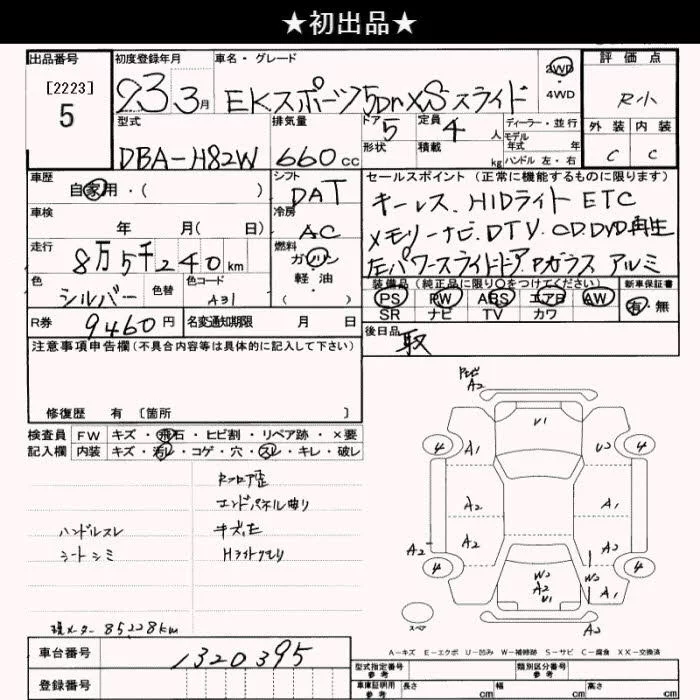 ★初出品★
出品番号 初度登録年月 車名・グレード 2WD 評価点
[2223] 23 3月 EKスポーツ5Dr XSスライド 4WD R小
5
型式 排気量 ドア 5 定員 4 人 ディーラー・並行 外装 内装
モデル年式 年
DBA-H82W 660cc 形状 積載 kg ハンドル 左・右 C C
車歴 シフト セールスポイント(正常に機能するものに限ります)
自家用・( ) DAT キーレス、HIDライト ETC
車検 冷房
年 月( 日) AC メモリーナビ.DTV.CD.DVD再生
走行 燃料
8万5千240km ガソリン 左パワースライドドア.Pガラス アルミ
色 色替 色コード 軽油 装備品(純正品に限り○をつけてください) 新車保証書
シルバー A31 PS PW ABS エアB AW 有・無
SR ナビ TV カワ
R券 9460円 名変通知期限 月 日 後日品
取
注意事項申告欄(不具合内容等は具体的に記入して下さい)
修復歴 有 [箇所 ]
検査員 FW キズ・飛石・ヒビ割・リペア跡・×要
記入欄 内装 キズ・汚レ・コゲ・穴・スレ・キレ・破レ
Rフロア歪
エンドパネル曲り
ハンドルスレ キズ,E
シートシミ Hライトクモリ
現メーター 85228km
A2
U1
4 A1 U2 4
A2 A1
A2 A2 A2
4 W2 W2 4
A2 A1
U1
スペア A2
A-キズ E-エクボ U-凹み W-補修跡 S-サビ C-腐食 XX-交換済
車台番号 1320395
登録番号
型式指定番号 参考 類別区分番号 参考
車庫証明用 参考 長さ cm 幅 cm 高さ cm